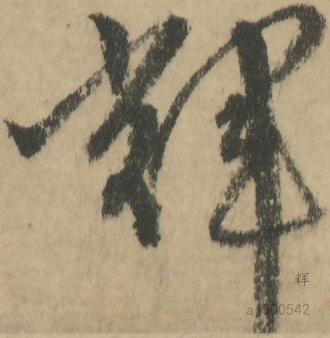 輝
辉
a1300542